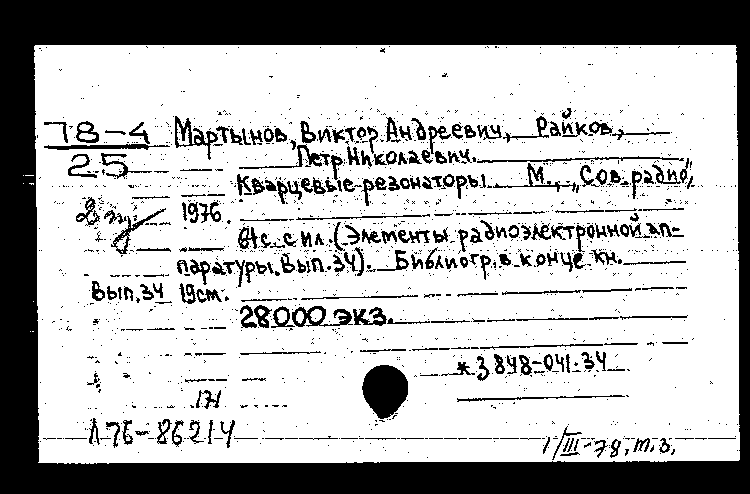 78-4 Мартынов, Виктор Андреевич, Райков,
25 Петр Николаевич.
Кварцевые резонаторы. М., "Сов. радио",
1976.
64с. с ил. (Элементы радиоэлектронной ап-
паратуры. Вып. 34). Библиогр. в конце кн.
Вып. 34 19см.
28000 экз.
*З 848-041.34
171
Л76-86214
1/III-78. т.з.